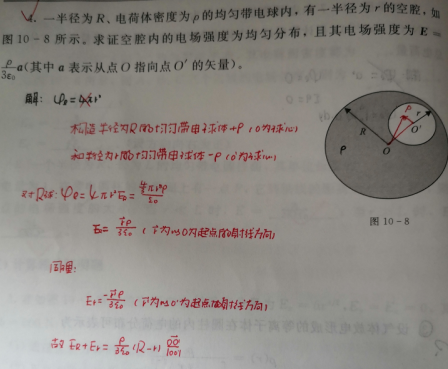 4. 一半径为 R、电荷体密度为 ρ 的均匀带电球内，有一半径为 r 的空腔，如
图 10－8 所示。求证空腔内的电场强度为均匀分布，且其电场强度为 E＝
ρ/3ε₀ a(其中 a 表示从点 O 指向点 O′ 的矢量)。
解: φe =
构造半径为R的均匀带电球体+ρ (O为球心)
和半径为r的均匀带电球体-ρ (O'为球心)
对R球: φe = 4πr²E₀ =
E₀ = r⃗ρ/3ε₀ (r⃗为以O为起点的径方向)
同理:
Er = -r⃗ρ/3ε₀ (r⃗为以O'为起点的径方向)
故 ER+Er = ρ/3ε₀ (R-r)
ρ
R
r
O
O′
P
图 10－8